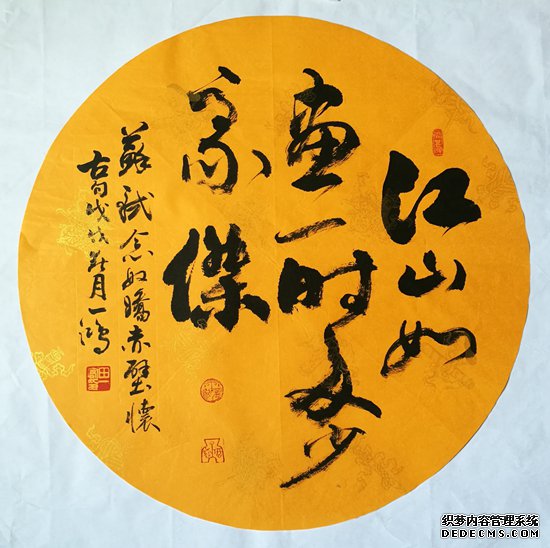 江山如
畫一时多少
豪傑
蘇軾念奴嬌赤壁懷
古句戊戌月一鴻
织梦内容管理系统
DEDECMS.COM